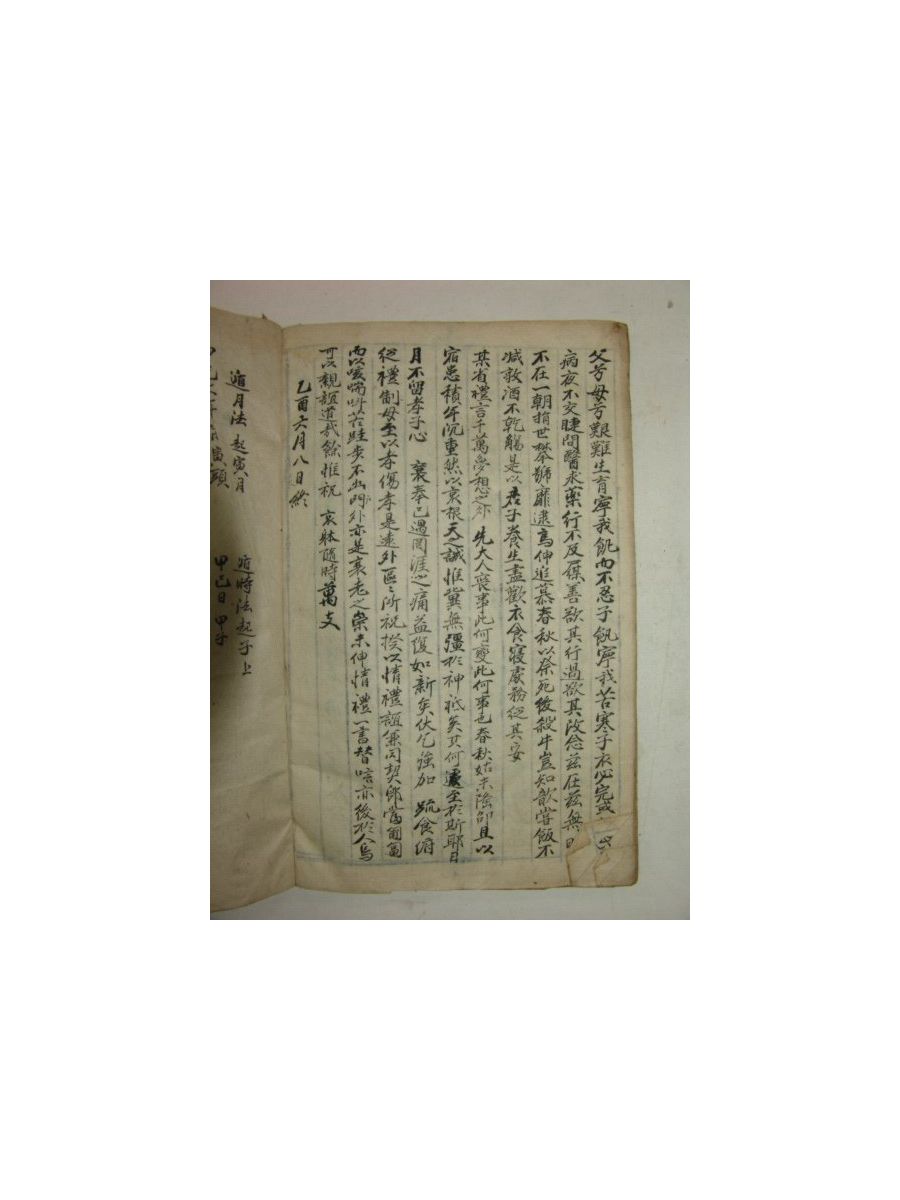 父兮母兮艱難生育寧我飢而不忍子飢寧我苦寒子衣必完或
病夜不交睫問醫求藥行不及屨善欲其行過欲其改念玆在玆無日
不在一朝捐世攀號靡逮烏伸追慕春秋以祭死後殺牛豈知歆嘗飯不
减数酒不乾觴是以君子養生盡歡衣食寢處務從其安
某省禮言千萬夢想之外 先大人喪事此何變此何事也春秋姑未隆卲且以
宿患積年沉重然以哀根天之誠惟冀無彊於神祗矣其何遽至於斯耶日
月不留孝子心 襄奉已過罔涯之痛益復如新矣伏乞強加 疏食俯
從禮制毋至以孝傷孝是遠外區〻所祝揆以情禮誼兼同契卽當匍匐
而以咳喘叫苦跬步不出門外亦是衰老之祟未伸情禮一書替唁亦後於人烏
可以親誼道哉餘惟祝 哀體隨時萬支
乙酉六月八日終
遁月法 起寅月
遁時法起子上
甲己日 甲子